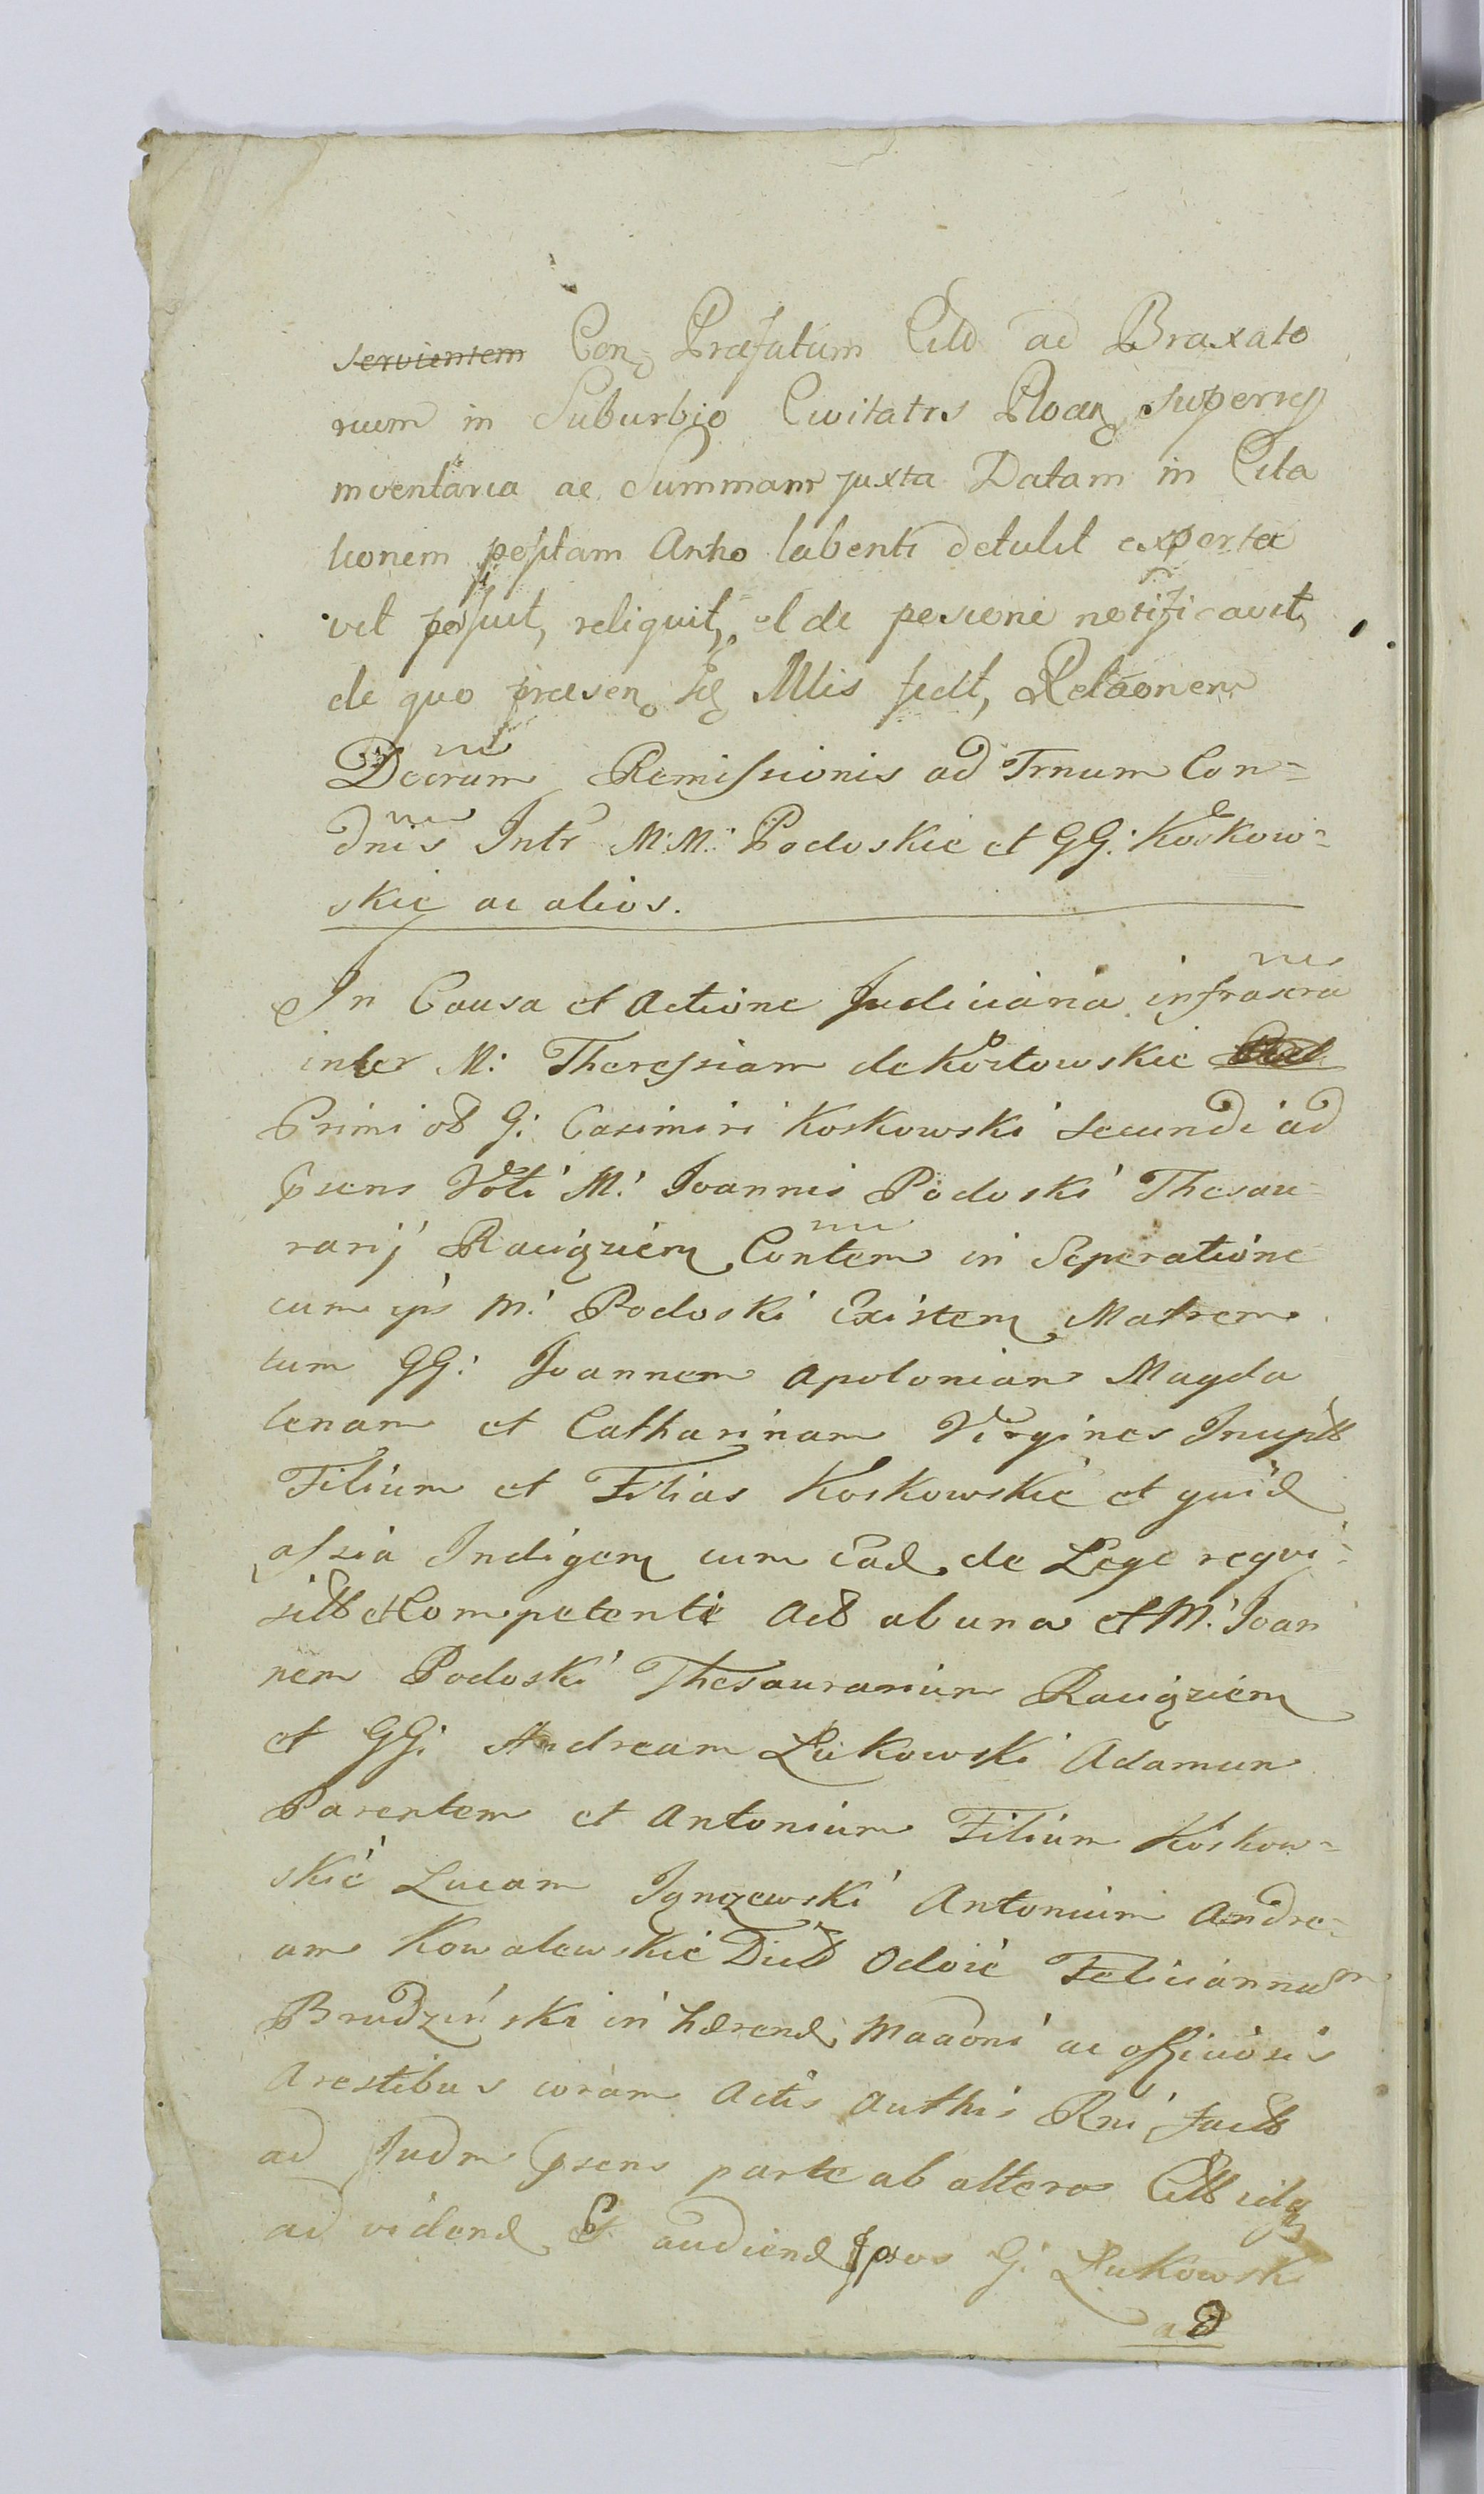 servientem Con Præfatum Citd ad Braxato
rium in Suburbio Civitatis Ploc superius
inventaria ac Summam juxta Datam in Cita
tionem Anno labenti detulit exporta
vit posuit, reliquit, et de notificavit,
de quo præsen Mtis fecit, Relaõnem
Decrum Remissionis ad Trnum Con=
dnis Intr M:M: Podoskie et GG: Koskow=
skie ac alios.
In Causa et Actione Judiciaria infrascra
inter M: Theressiam de Kozłowskie
Primi olb G: Casimiri Koskowski Secundi ad
psens Voti M: Joannis Podoski Thesau=
rarij Raciązien Contem in Seperatione
cum ips M: Podoski Existen Matrem
tum GG: Joannem Apolonian Magda
lenam et Catharinam Virgines Inuptb
Filium et Filias Koskowskie et quid
assia Indigen cum Ead de Lege requi=
sitb et Competenti Actb ab una et M: Joan
nem Podoski Thesaurarium Raciązien
et GG: Andream Łukowski Adamum
Parentem et Antonium Filium Koskow=
skie Lucam Antonium Andre=
am Kowalewskie Felicianum
Brudziński in hærend Maaõni ac officiosis
Arestibus coram Actis Authis Rni factb
ad Judm psens parte ab altera Citb
ad vidend Et audiend Ipsos G: Łukowsk
ad